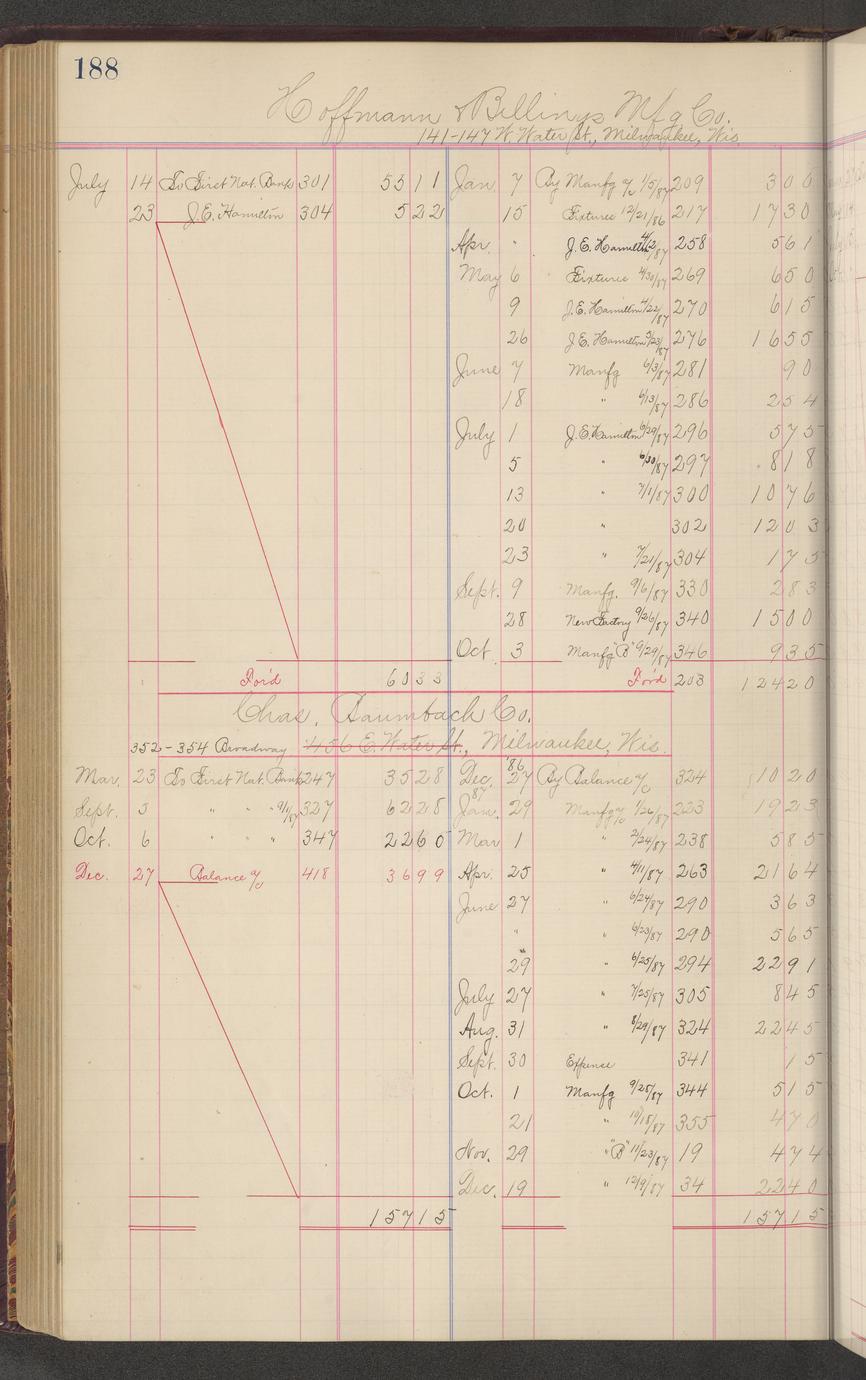 188
Hoffmann & Billings Mfg Co.
141-147 W. Water St., Milwaukee, Wis
July 14 To First Nat. Bank 301 55 11 Jan 7 By Manfg a/c 1/5/87 209 3 00
23 J.E. Hamilton 304 5 22 15 Fixtures 12/21/86 217 17 30
Apr. " J.E. Hamilton 4/2/87 258 5 61
May 6 Fixtures 4/30/87 269 6 50
9 J.E. Hamilton 4/22/87 270 6 15
26 J.E. Hamilton 5/23/87 276 16 55
June 7 Manfg 6/3/87 281 90
18 " 6/13/87 286 2 54
July 1 J.E. Hamilton 6/29/87 296 5 75
5 " 6/30/87 297 8 18
13 " 7/1/87 300 10 76
20 " 302 12 03
23 " 7/21/87 304 1 75
Sept. 9 Manfg. 9/6/87 330 2 83
28 New Factory 9/26/87 340 15 00
Oct. 3 Manfg "B" 9/29/87 346 9 35
For'd 60 33 For'd 208 124 20
Chas. Baumbach Co.
352-354 Broadway 456 E. Water St., Milwaukee, Wis.
Mar. 23 To First Nat. Bank 247 35 28 Dec. '86 27 By Balance a/c 324 10 20
Sept. 3 " " " 9/1/87 327 62 28 Jan. 87 29 Manfg a/c 1/26/87 223 19 23
Oct. 6 " " " 347 22 60 Mar 1 " 2/24/87 238 5 85
Dec. 27 Balance a/c 418 36 99 Apr. 25 " 4/11/87 263 21 64
June 27 " 6/24/87 290 3 63
" " " 6/23/87 290 5 65
29 " 6/25/87 294 22 91
July 27 " 7/25/87 305 8 45
Aug. 31 " 8/29/87 324 22 45
Sept. 30 Expense 341 15
Oct. 1 Manfg 9/28/87 344 5 15
21 " 10/18/87 355 4 70
Nov. 29 " "B" 11/23/87 19 4 74
Dec. 19 " 12/9/87 34 22 40
157 15 157 15